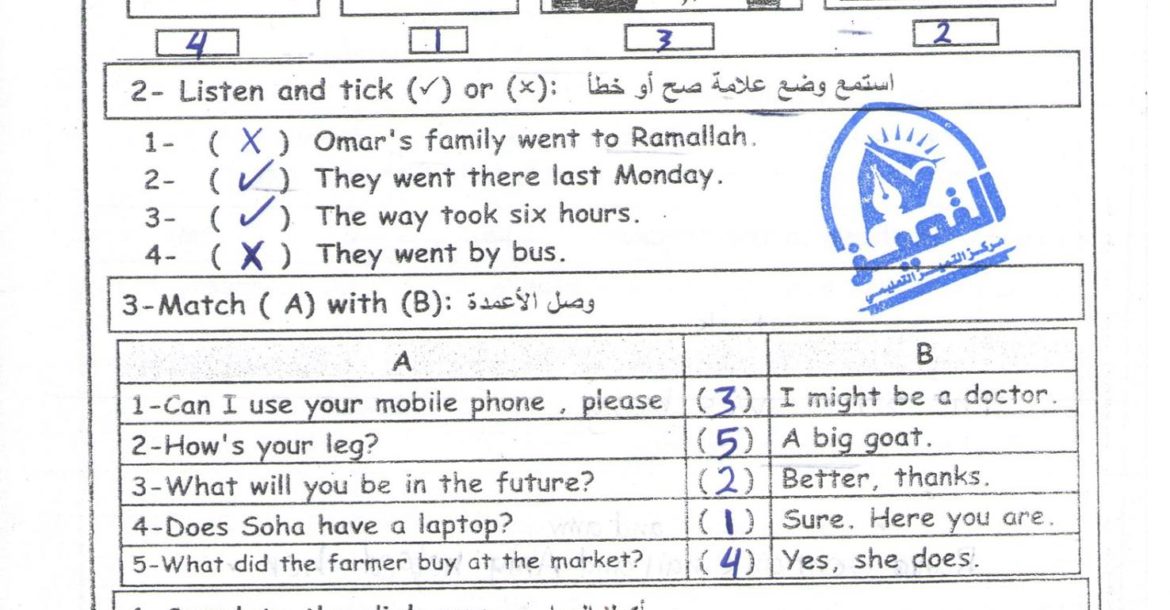 4 1 3 2
2- Listen and tick (✓) or (×): استمع وضع علامة صح أو خطأ
1- ( X ) Omar's family went to Ramallah.
2- ( ✓ ) They went there last Monday.
3- ( ✓ ) The way took six hours.
4- ( X ) They went by bus.
التميز
مركز التميز التعليمي
3-Match ( A) with (B): وصل الأعمدة
A B
1-Can I use your mobile phone , please (3) I might be a doctor.
2-How's your leg? (5) A big goat.
3-What will you be in the future? (2) Better, thanks.
4-Does Soha have a laptop? (1) Sure. Here you are.
5-What did the farmer buy at the market? (4) Yes, she does.